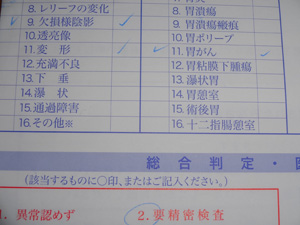 8. レリーフの変化
9. 欠損様陰影
10. 透亮像
11. 変形
12. 充満不良
13. 下垂
14. 瀑状
15. 通過障害
16. その他※
8. 胃潰瘍
9. 胃潰瘍瘢痕
10. 胃ポリープ
11. 胃がん
12. 胃粘膜下腫瘍
13. 瀑状胃
14. 胃憩室
15. 術後胃
16. 十二指腸憩室
総合判定・
(該当するものに○印、またはご記入ください。)
1. 異常認めず
2. 要精密検査